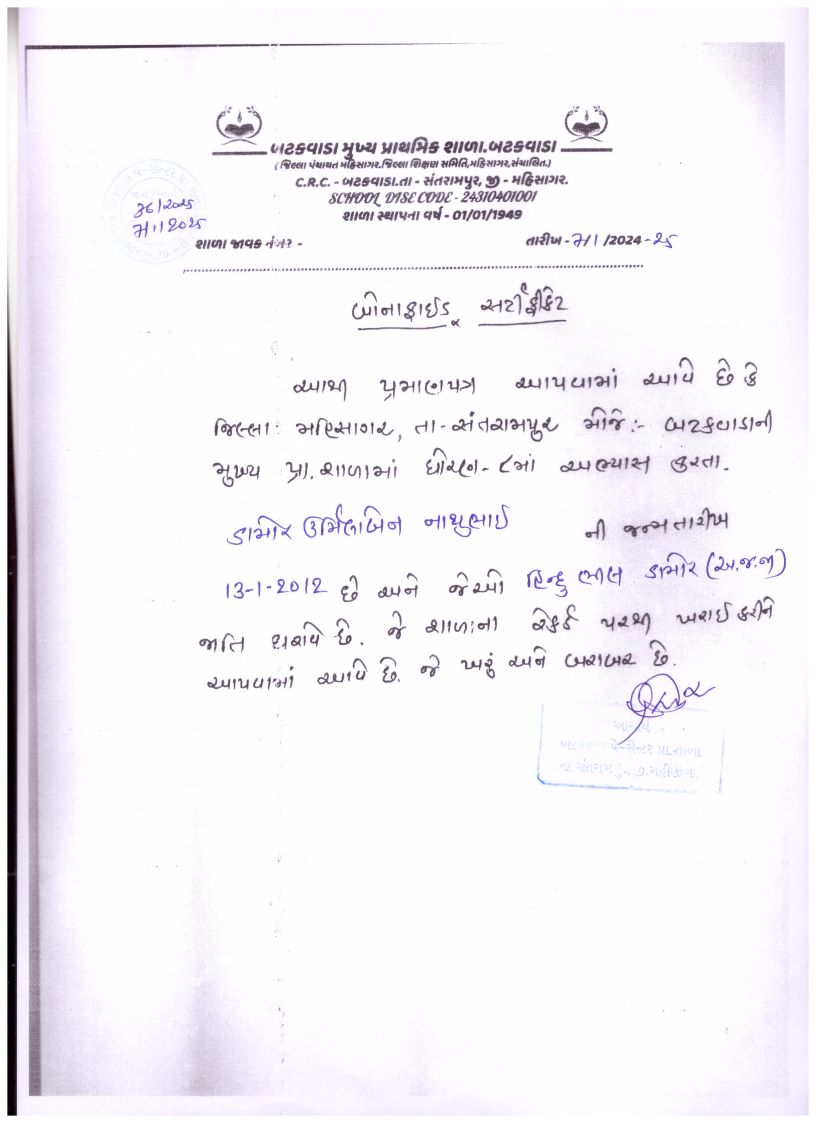 બટકવાડા મુખ્ય પ્રાથમિક શાળા.બટકવાડા
(જિલ્લા પંચાયત મહિસાગર.જિલ્લા શિક્ષણ સમિતિ,મહિસાગર,સંચાલિત.)
C.R.C. - બટકવાડા.તા - સંતરામપુર, જી - મહિસાગર.
SCHOOL DISE CODE - 24310401001
શાળા સ્થાપના વર્ષ - 01/01/1949
36/2025
7/1/2025
શાળા જાવક નંબર -
તારીખ - 7/1/2024-25
બોનાફાઈડ સર્ટીફીકેટ
આથી પ્રમાણપત્ર આપવામાં આવે છે કે
જિલ્લા: મહિસાગર, તા-સંતરામપુર મીજે:- બટકવાડાની
મુખ્ય પ્રા. શાળામાં ધોરણ-૮માં અભ્યાસ કરતા.
ડામોર ઉર્મિલાબેન નાથુભાઈ ની જન્મતારીખ
13-1-2012 છે અને જેઓ હિન્દુ ભીલ ડામોર (અ.જ.જા)
જાતિ ધરાવે છે. જે શાળાના રેકર્ડ પરથી ખરાઈ કરીને
આપવામાં આવે છે. જે ખરું અને બરાબર છે.
આચાર્ય
બટકવાડા પે-સેન્ટર પ્રા.શાળા
તા.સંતરામપુ.,જી.મહીસાગર.